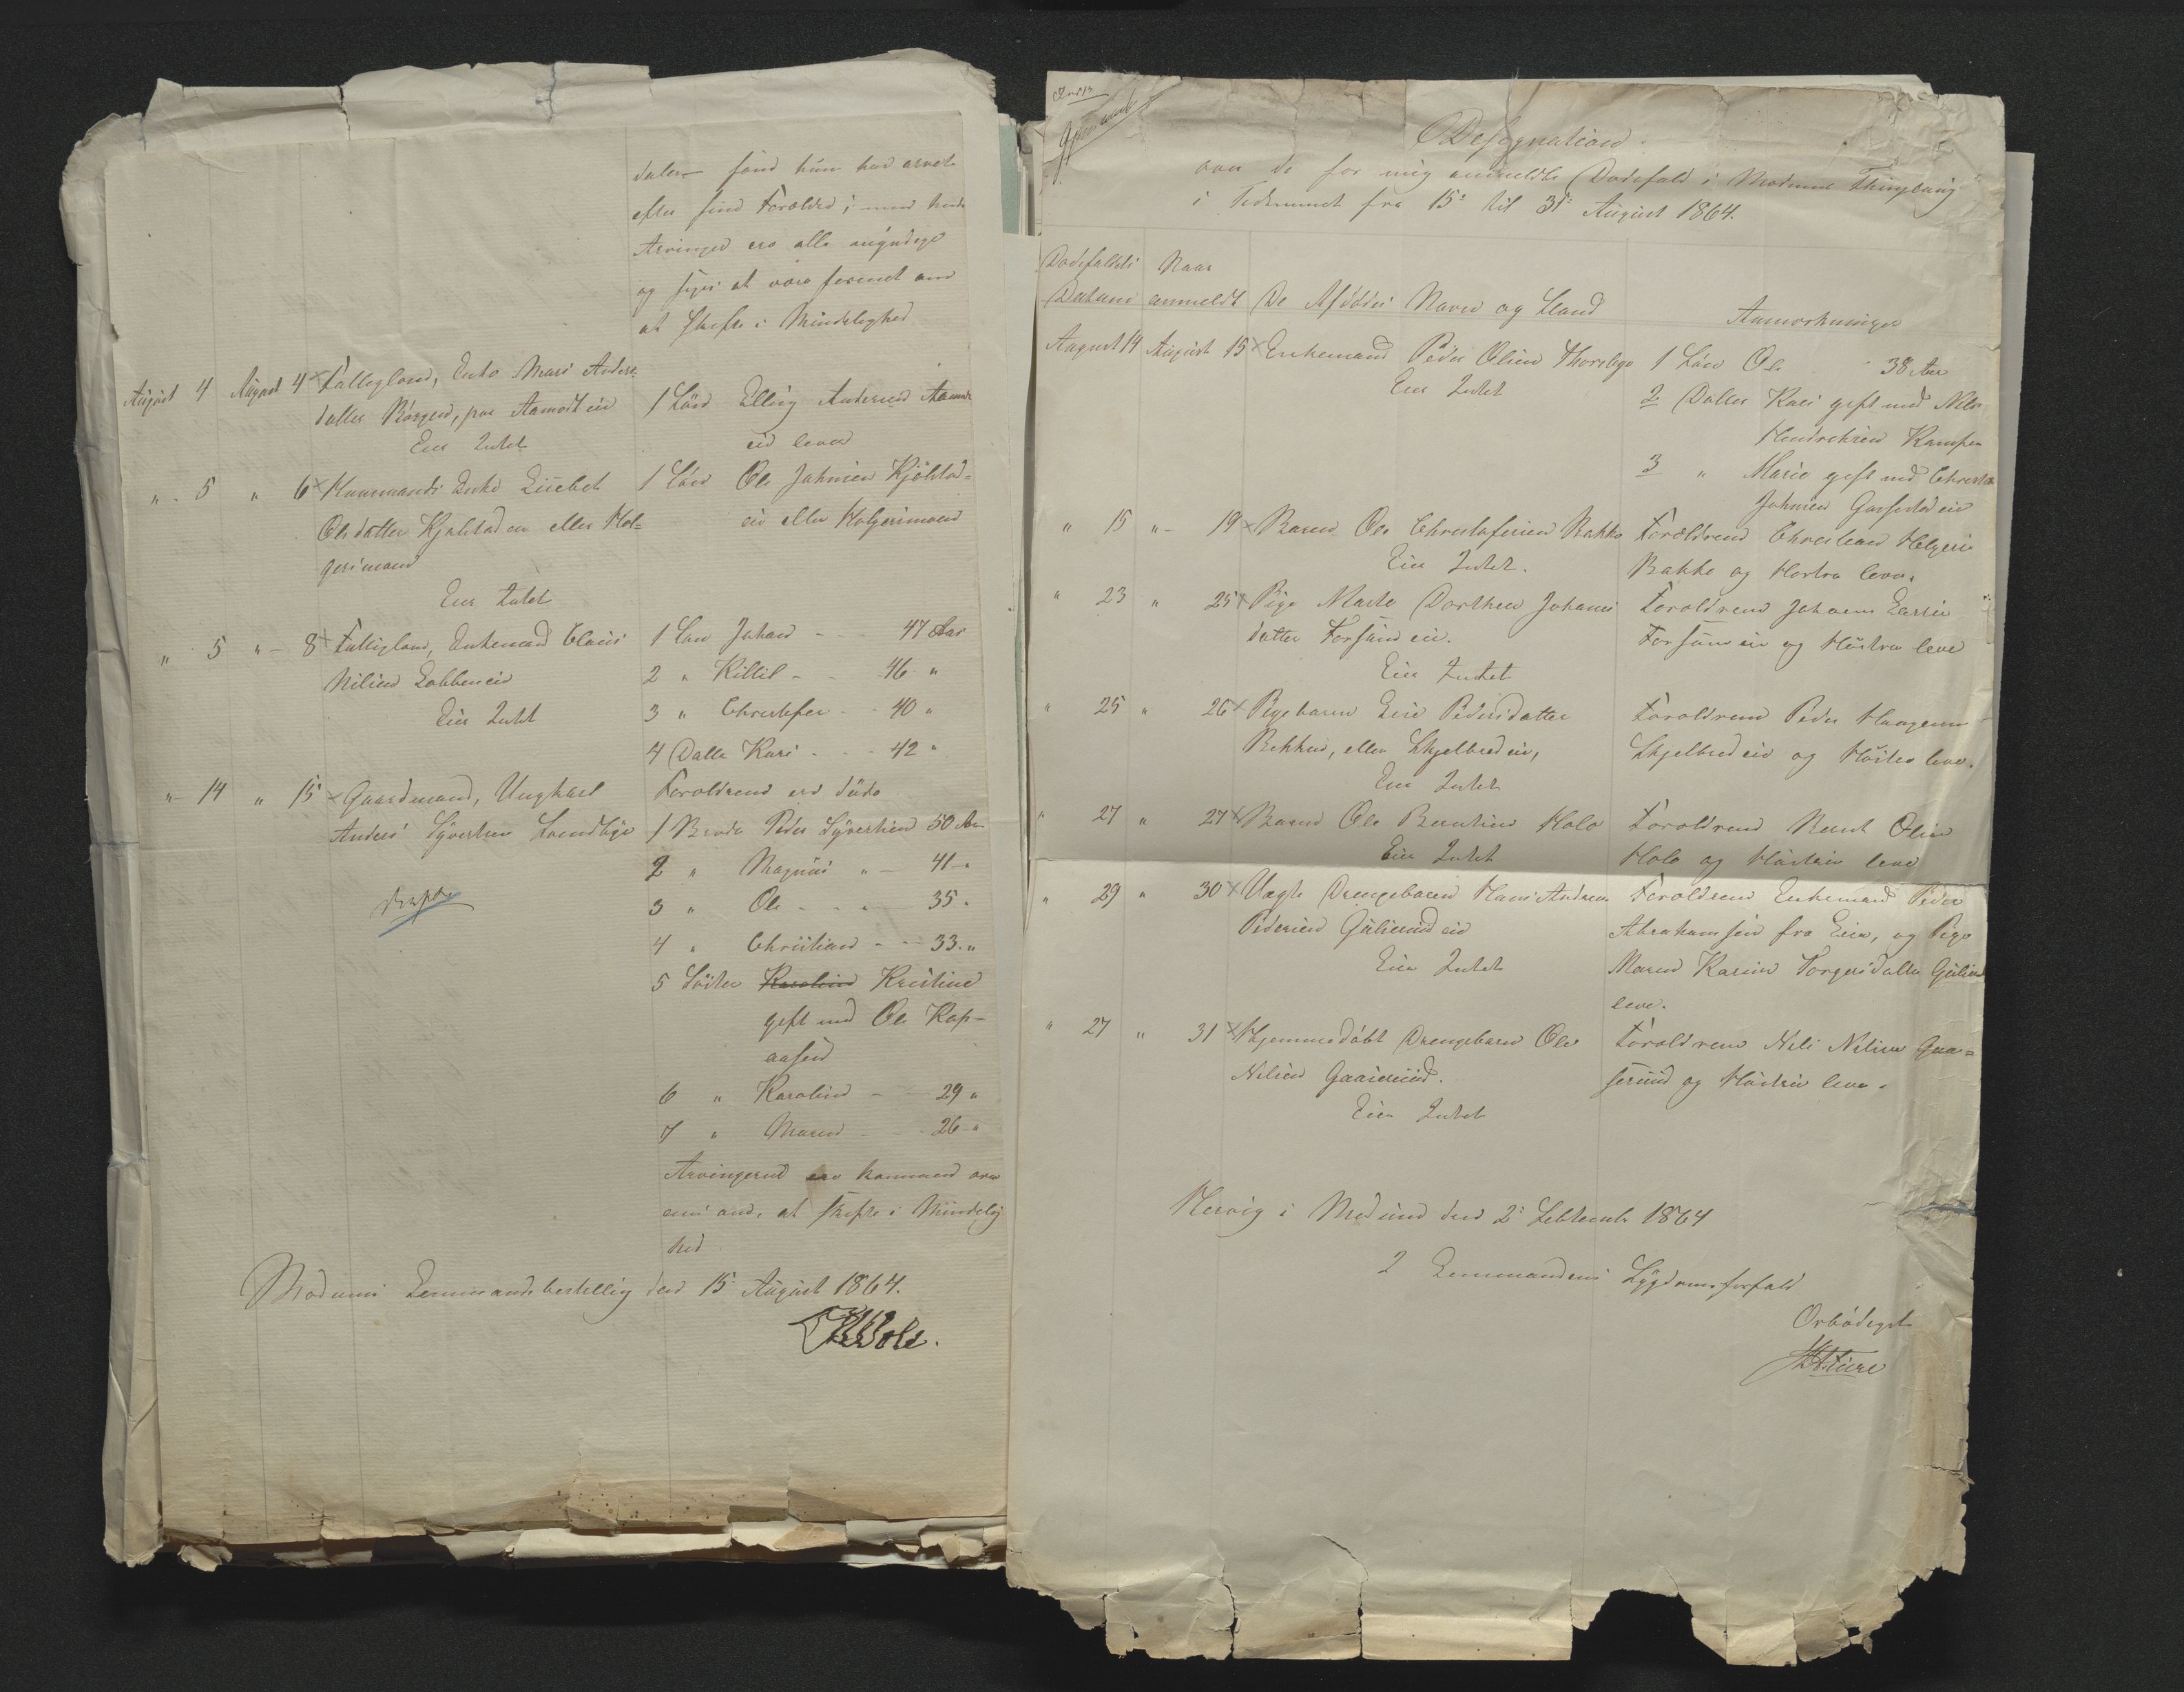 daler som hun har arvet
efter sine Foreldre; men hendes
Arvinger ere alle myndige
og siges at være forenet om
at skifte i Mindelighed
August 4 August 4 Fattiglem, Enke Mari Anders-
datter Børgen, paa Aamodt eie
Eier Intet
1 Søn Elling Andersen Aamot
eie lever
" 5 " 6 Huusmands Enke Liisebet
Olsdatter Kjølstad eie eller Hol-
gerimoen
Eier Intet
1 Søn Ole Johnsen Kjølstad-
eie eller Holgerimoen
" 5 " 8 Fattiglem, Enkemand Claus
Nilsen Løbben eie
Eier Intet
1 Søn Johan - - 47 Aar
2 " Kittil - - 46 "
3 " Christofer - - 40 "
4 Datter Kari - - 42 "
" 14 " 15 Gaardmand, Ungkarl
Anders Syversen Lundbye
Forældrene ere døde
1 Broder Peder Syvertsen 50 Aar
2 " Magnus " - 41 "
3 " Ole - - 35 "
4 " Christian - - 33 "
5 Søster Karoline Kristine
gift med Ole Kop-
aasen
6 " Karoline - - 29 "
7 " Maren - - 26 "
Arvingerne ere kommen over
eens om, at skifte i Mindelig
hed
Modums Lensmandsbestilling den 15 August 1864.
Designation
over de for mig anmeldte Dødsfald i Modums Thinglaug
i Tidsrummet fra 15de til 31te August 1864.
Dødsfaldets
Datum
Naar
anmeldt
De Afdødes Navn og Stand
Anmærkninger
August 14 August 15 Enkemand Peder Olsen Thorsbye
Eier Intet
1 Søn Ole 38 Aar
2 Datter Kari gift med Nils
Hendriksen Kampen
3 " Marie gift med Christen
Johnsen Gusfostad eie
" 15 " 19 Barn Ole Christofersen Bakke
Eier Intet.
Forældrene Christian Helgers
Bakke og Hustru leve.
" 23 " 25 Pige Marte Dorthea Johans
datter Forsund eie.
Eier Intet
Forældrene Johan Larsen
Forsund eie og Hustru leve
" 25 " 26 Pigebarn Lise Pedersdatter
Bekken, eller Skjelbred eie,
Eier Intet
Forældrene Peder Haagensen
Skjelbred eie og Hustru leve.
" 27 " 27 Barn Ole Berntsen Hole
Eier Intet
Forældrene Bernt Olsen
Hole og Hustru leve
" 29 " 30 Uægte Drengebarn Hans Andreas
Pedersen Gulsrud eie
Eier Intet
Forældrene Enkemand Peder
Abrahamsen fra Eier, og Pige
Maren Karine Torgersdatter Gulsrud
leve.
" 27 " 31 Hjemmedøbt Drengebarn Ole
Nilsen Gaaserud.
Eier Intet
Forældrene Nils Nilsen Gaa-
serud og Hustru leve.
Hervig i Modum den 2 Septembr 1864
I Lensmandens Sygdomsforfald
Ærbødigst